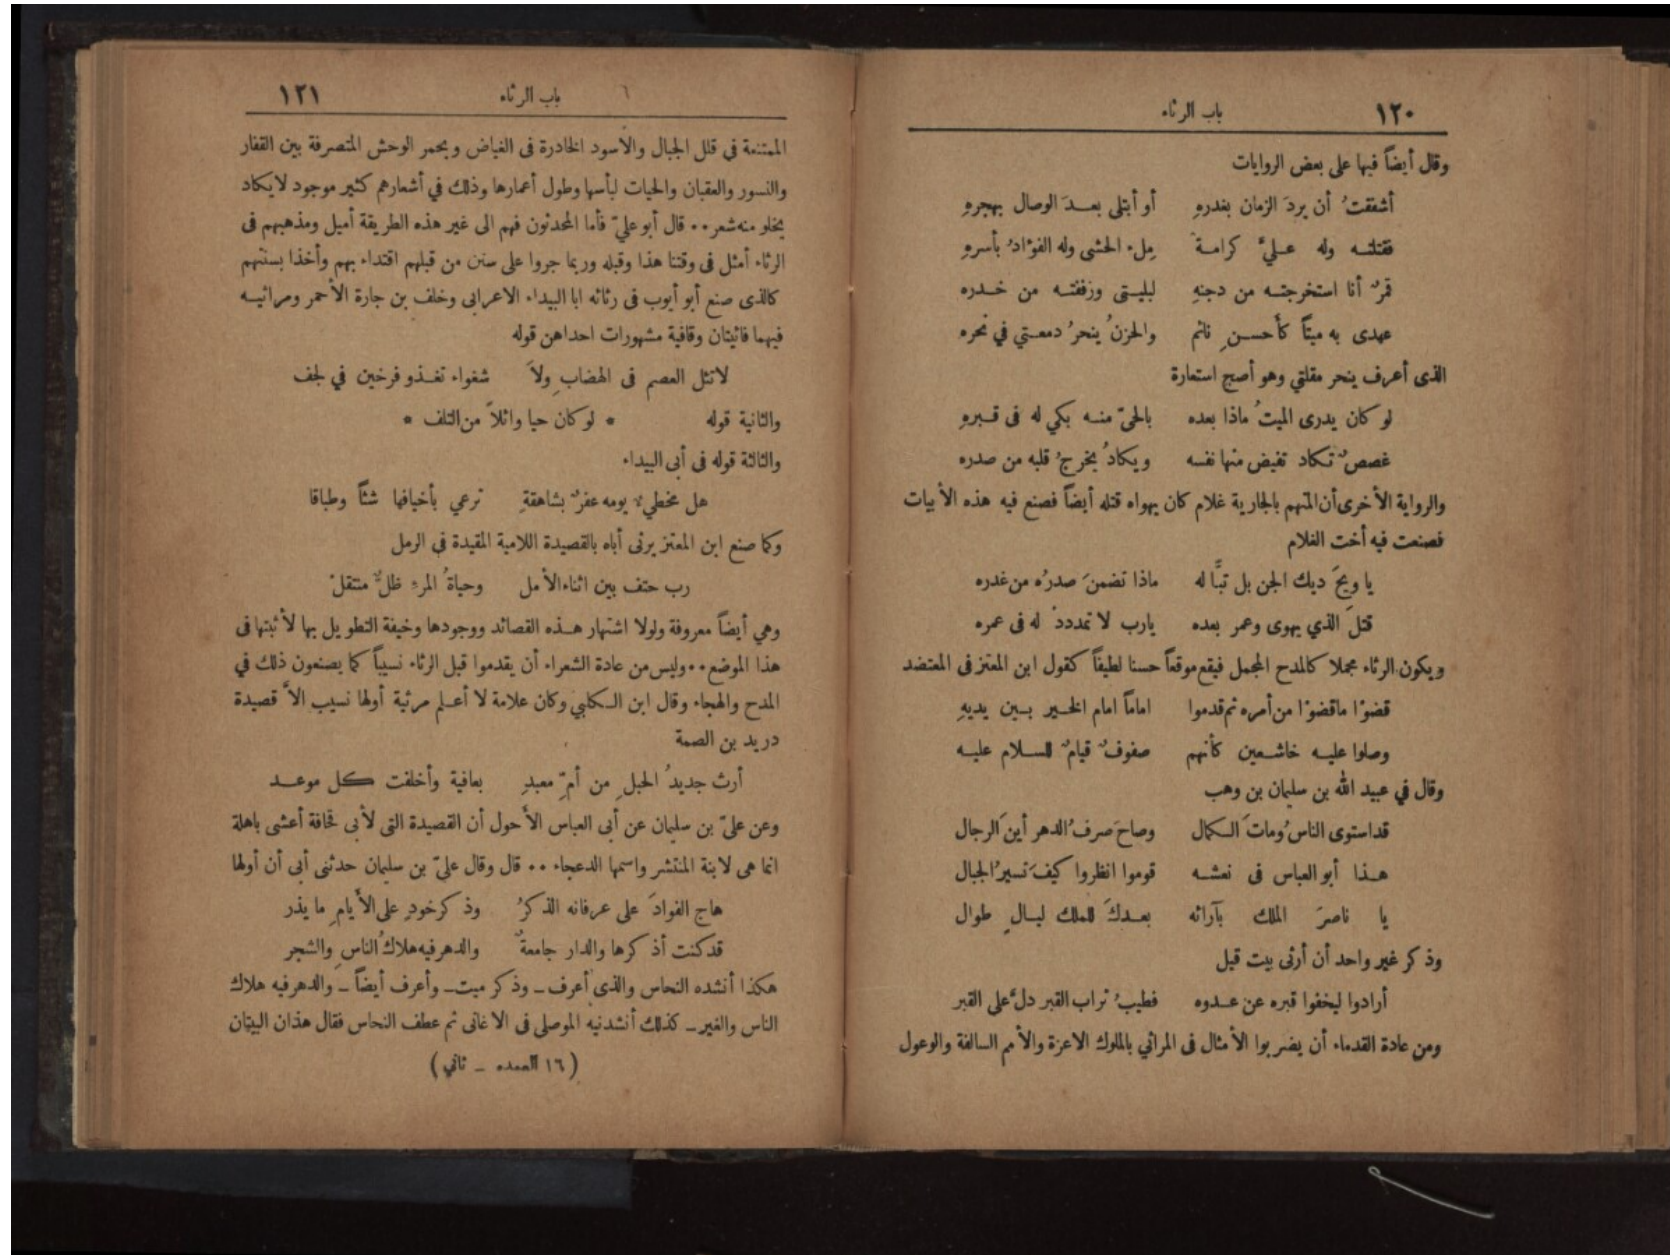 ١٢٠ باب الرثاء
وقال أيضاً فيها على بعض الروايات
أشفقتُ أن يردَ الزمان بغدرهِ أو أبتلى بعـدَ الوصال بهجرهِ
فقتلته وله علىَّ كرامةً مِلء الحشى وله الفؤادُ بأسرهِ
قمرٌ أنا استخرجته من دجنهِ لبليتى وزففته من خدره
عهدى به ميتاً كأحسنِ نائم والحزنُ ينحرُ دمعتي في نحره
الذى أعرف ينحر مقلتي وهو أصح استعارة
لو كان يدرى الميتُ ماذا بعده بالحىّ منه بكي له فى قبرهِ
غصصٌ تكاد تفيض منها نفسه ويكادُ يخرجُ قلبه من صدره
والرواية الأخرى أن المتهم بالجارية غلام كان يهواه قتله أيضاً فصنع فيه هذه الأبيات
فصنعت فيه أخت الغلام
يا ويحَ ديك الجن بل تبًّا له ماذا تضمنَ صدرُه من غدره
قتلَ الذي يهوى وعمر بعده يارب لا تمددْ له فى عمره
ويكون الرثاء مجملا كالمدح المجمل فيقع موقعاً حسنا لطيفاً كقول ابن المعتز فى المعتضد
قضوْا ماقضوْا من أمره ثم قدموا اماماً امام الخير بين يديهِ
وصلوا عليه خاشعين كأنهم صفوفٌ قيامٌ للسلام عليه
وقال في عبيد الله بن سليمان بن وهب
قد استوى الناسُ ومات الكمال وصاحَ صرفُ الدهر أينَ الرجال
هذا أبو العباس فى نعشه قوموا انظروا كيفَ تسيرُ الجبال
يا ناصرَ الملك بآرائه بعدكَ للملك ليالٍ طوال
وذكر غير واحد أن أرثى بيت قيل
أرادوا ليخفوا قبره عن عدوه فطيبُ تراب القبر دلَّ على القبر
ومن عادة القدماء أن يضربوا الأمثال فى المراثي بالملوك الاعزة والأمم السالفة والوعول
باب الرثاء ١٢١
الممتنعة في قلل الجبال والأسود الخادرة فى الغياض وبحمر الوحش المتصرفة بين القفار
والنسور والعقبان والحيات لبأسها وطول أعمارها وذلك في أشعارهم كثير موجود لايكاد
يخلو منه شعر ٠٠ قال أبو علىّ فأما المحدثون فهم الى غير هذه الطريقة أميل ومذهبهم فى
الرثاء أمثل فى وقتنا هذا وقبله وربما جروا على سنن من قبلهم اقتداء بهم وأخذا بسنتهم
كالذى صنع أبو أيوب فى رثائه ابا البيداء الاعرابى وخلف بن جارة الأحمر ومراثيه
فيهما فائيتان وقافية مشهورات احداهن قوله
لاتئل العصم فى الهضابِ ولاَ شغواء تغذو فرخين في لجف
والثانية قوله * لو كان حيا وائلاً من التلف *
والثالثة قوله فى أبى البيداء
هل مخطىءٌ يومه عفرٌ بشاهقةٍ ترعي بأخيافها شثًّا وطباقا
وكما صنع ابن المعتز يرثى أباه بالقصيدة اللامية المقيدة في الرمل
رب حتف بين اثناء الأمل وحياةُ المرءِ ظلٌّ منتقلْ
وهي أيضاً معروفة ولولا اشتهار هذه القصائد ووجودها وخيفة التطويل بها لأثبتها فى
هذا الموضع ٠٠ وليس من عادة الشعراء أن يقدموا قبل الرثاء نسيباً كما يصنعون ذلك في
المدح والهجاء وقال ابن الكلبي وكان علامة لا أعلم مرثية أولها نسيب الاَّ قصيدة
دريد بن الصمة
أرث جديدُ الحبلِ من أمِّ معبدِ بعافية وأخلفت كل موعد
وعن علىّ بن سليمان عن أبى العباس الأحول أن القصيدة التى لأبى قحافة أعشى باهلة
انما هى لابنة المنتشر واسمها الدعجاء ٠٠ قال وقال علىّ بن سليمان حدثنى أبى أن أولها
هاج الفوادَ على عرفانه الذكرُ وذكر خودٍ على الأيامِ ما يذر
قد كنت أذكرها والدار جامعةٌ والدهر فيه هلاكُ الناسِ والشجر
هكذا أنشده النحاس والذى أعرف ـ وذكر ميت ـ وأعرف أيضاً ـ والدهر فيه هلاك
الناس والغير ـ كذلك أنشدنيه الموصلى فى الاغانى ثم عطف النحاس فقال هذان البيتان
(١٦ العمده ـ ثاني)